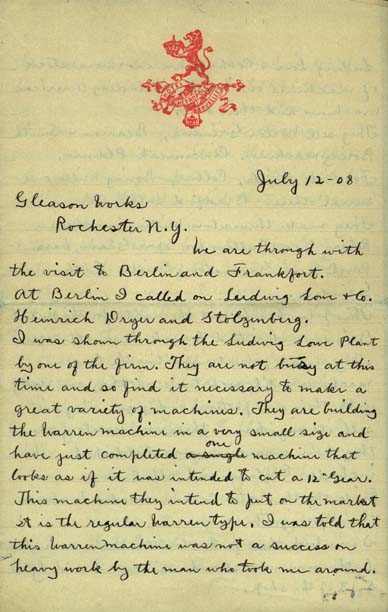 HOTEL METROPOLE
BRUXELLES
July 12-08
Gleason Works
Rochester N.Y.
We are through with
the visit to Berlin and Frankfort.
At Berlin I called on Ludwig Low & Co.
Heinrich Dryer and Stolzenberg.
I was shown through the Ludwig Low Plant
by one of the firm. They are not busy at this
time and so find it necessary to make a
great variety of machines. They are building
the Warren machine in a very small size and
have just completed a single one machine that
looks as if it was intended to cut a 12" Gear.
This machine they intend to put on the market
It is the regular Warren type. I was told that
this Warren machine was not a success on
heavy work by the man who took me around.